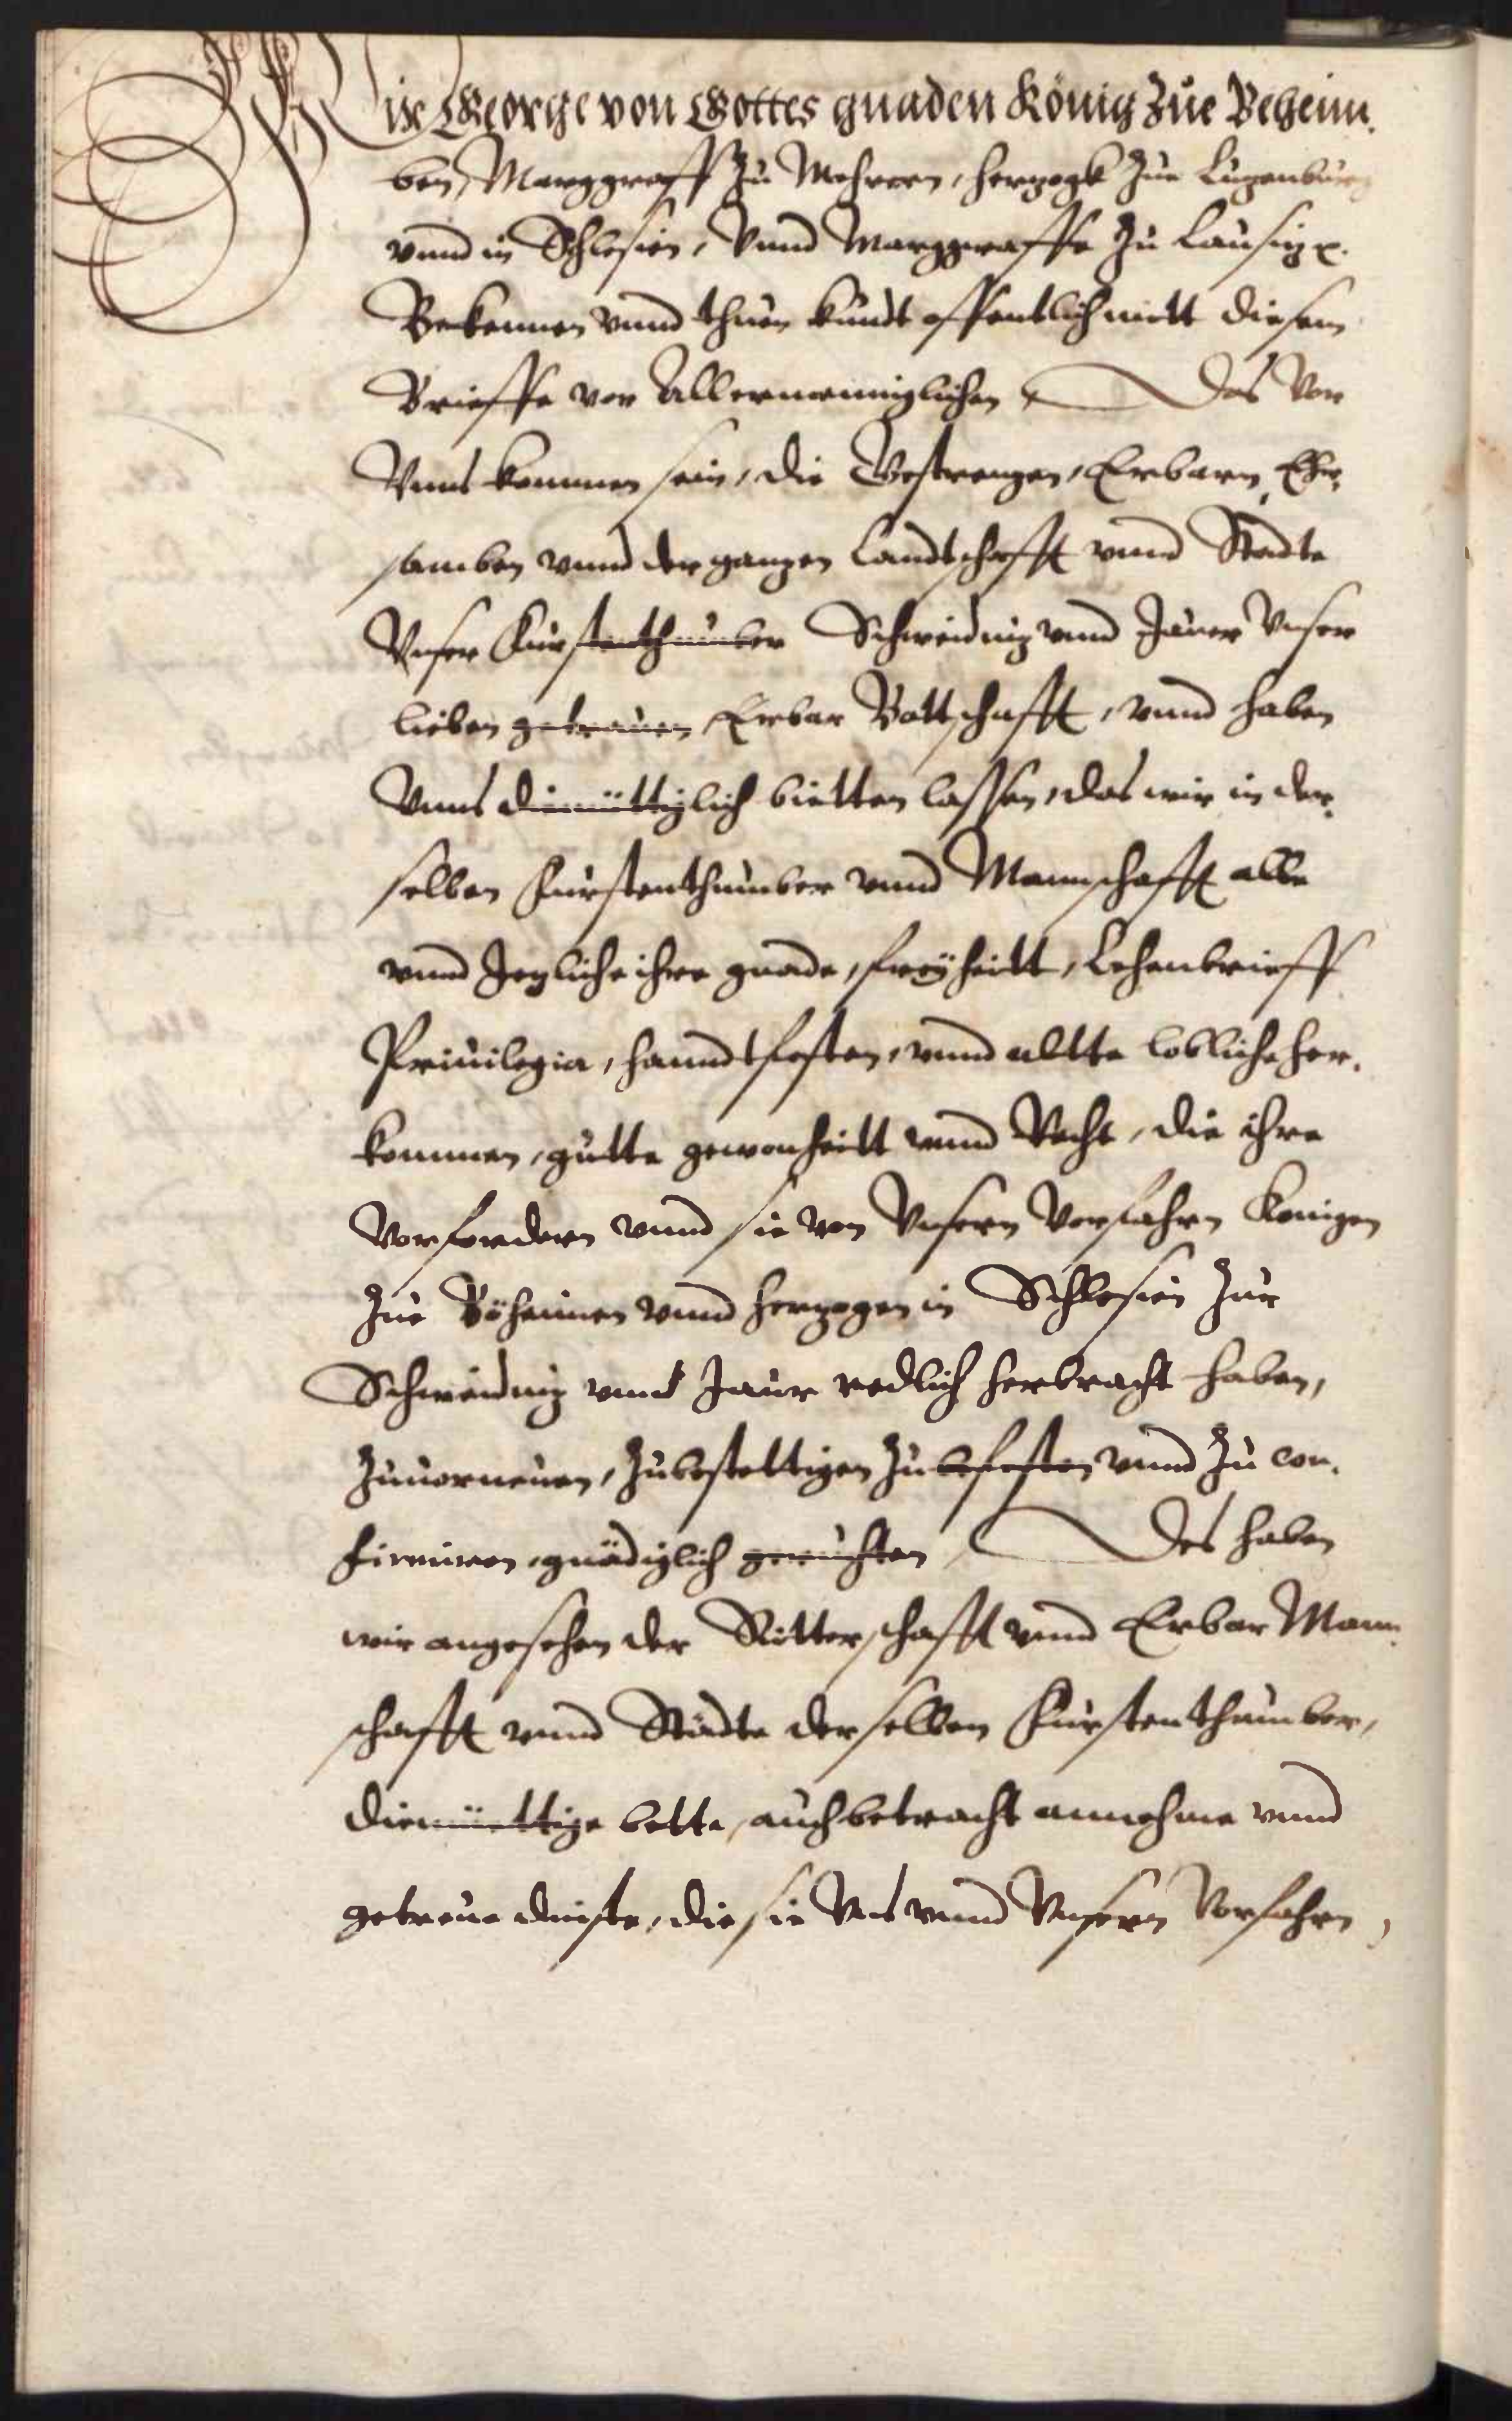 Wir George von Gottes gnaden König Zue Beheim.
ben, Marggraff Zu Mehrern, herzogk Zue Luzenburg
vnnd in Schlesien, Vnnd Marggraffe Zu Lausitz x.
Bekennen vnnd thuen kundt offentlich mitt diesem
Brieffe vor Allermenniglichen, Das Vor
Vnns kommen sein, die Gestrengen, Erbarn, Ehr,
samben vnnd der ganzen Landtschafft vnnd Stedte
Vnser Furstenthumber Schweidnitz vnnd Jauer Vnser
lieben getreuen Erbar Bottschafft, vnnd haben
Vnns diemüttiglich bietten lassen, das wir in der,
selben Furstenthumber vnnd Mannschafft alle
vnnd Jegliche ihre gnade, freÿheitt, Lehenbrieff
Priuilegia, hanndtfesten, vnnd altte lobliche her.
kommen, gutte gewonheitt vnnd Recht, die ihre
Vorfordern vnnd sie von Vnsern Vorfahrn Konigen
Zue Böheimen vnnd herzogen in Schlesien Zur
Schweidnitz vnnd Jaur redlich herbracht haben,
Zuuorneuen, Zubestettigen Zu befesten vnnd Zu con.
firmiren, gnädiglich geruchten, Des haben
wir angesehen der Ritterschafft vnnd Erbar Mann.
schafft vnnd Städte derselben Furstenthumber,
diemüettige bette, auch betracht annehme vnnd
getreue dinste, die sie Vns vnnd Vnsern Vorfahrn,